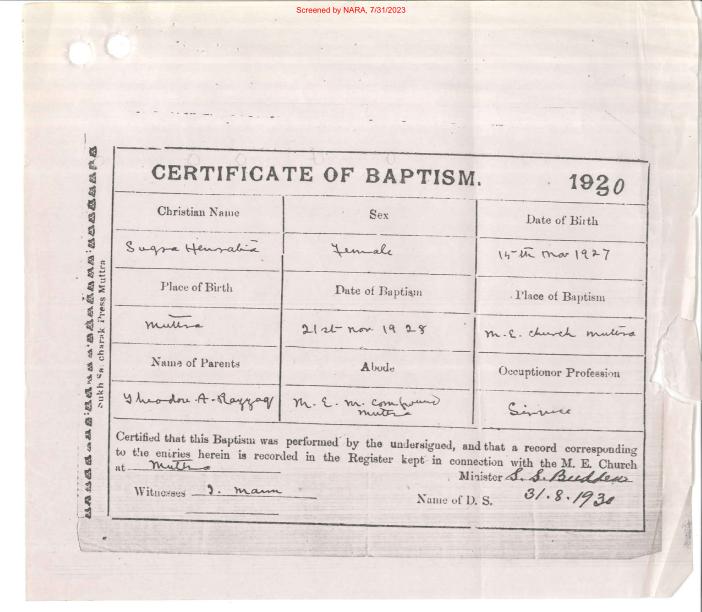 Screened by NARA, 7/31/2023
CERTIFICATE OF BAPTISM. 1930
Christian Name Sex Date of Birth
Sugra Female 15th Nov 1927
Place of Birth Date of Baptism Place of Baptism
Muttra 21st Nov 1928 M.E. church Muttra
Name of Parents Abode Occuptionor Profession
Theodore A. Rayzaq M.E.M. compound Service
Muttra
Certified that this Baptism was performed by the undersigned, and that a record corresponding
to the entries herein is recorded in the Register kept in connection with the M. E. Church
at Muttra
Minister S. S.
Witnesses Mann
Name of D. S. 31.8.1930
charak Press Muttra